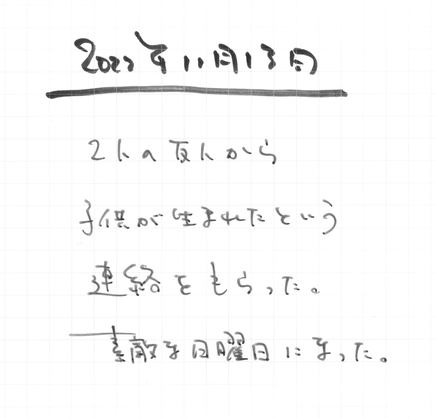 2022年11月13日
2人の友人から
子供が生まれたという
連絡をもらった。
素敵な日曜日になった。